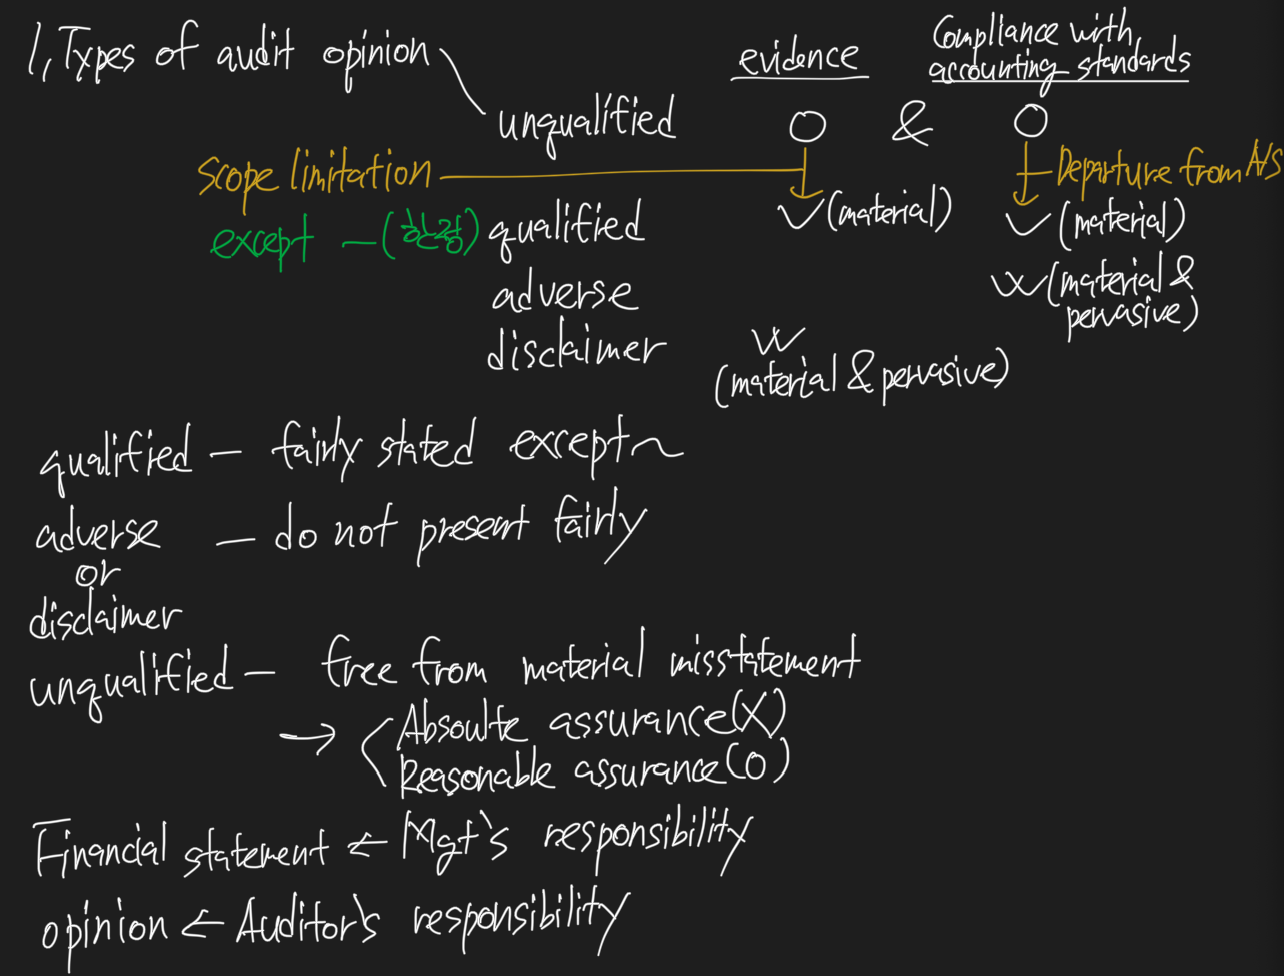 1, Types of audit opinion
evidence
Compliance with
accounting standards
unqualified O & O
scope limitation
Departure from A/S
except - (한정) qualified V (material) V (material)
adverse W (material &
pervasive)
disclaimer W
(material & pervasive)
qualified - fairly stated except~
adverse - do not present fairly
or
disclaimer
unqualified - free from material misstatement
→ < Absoulte assurance (X)
Reasonable assurance (O)
Financial statement ← Mgt's responsibility
opinion ← Auditor's responsibility